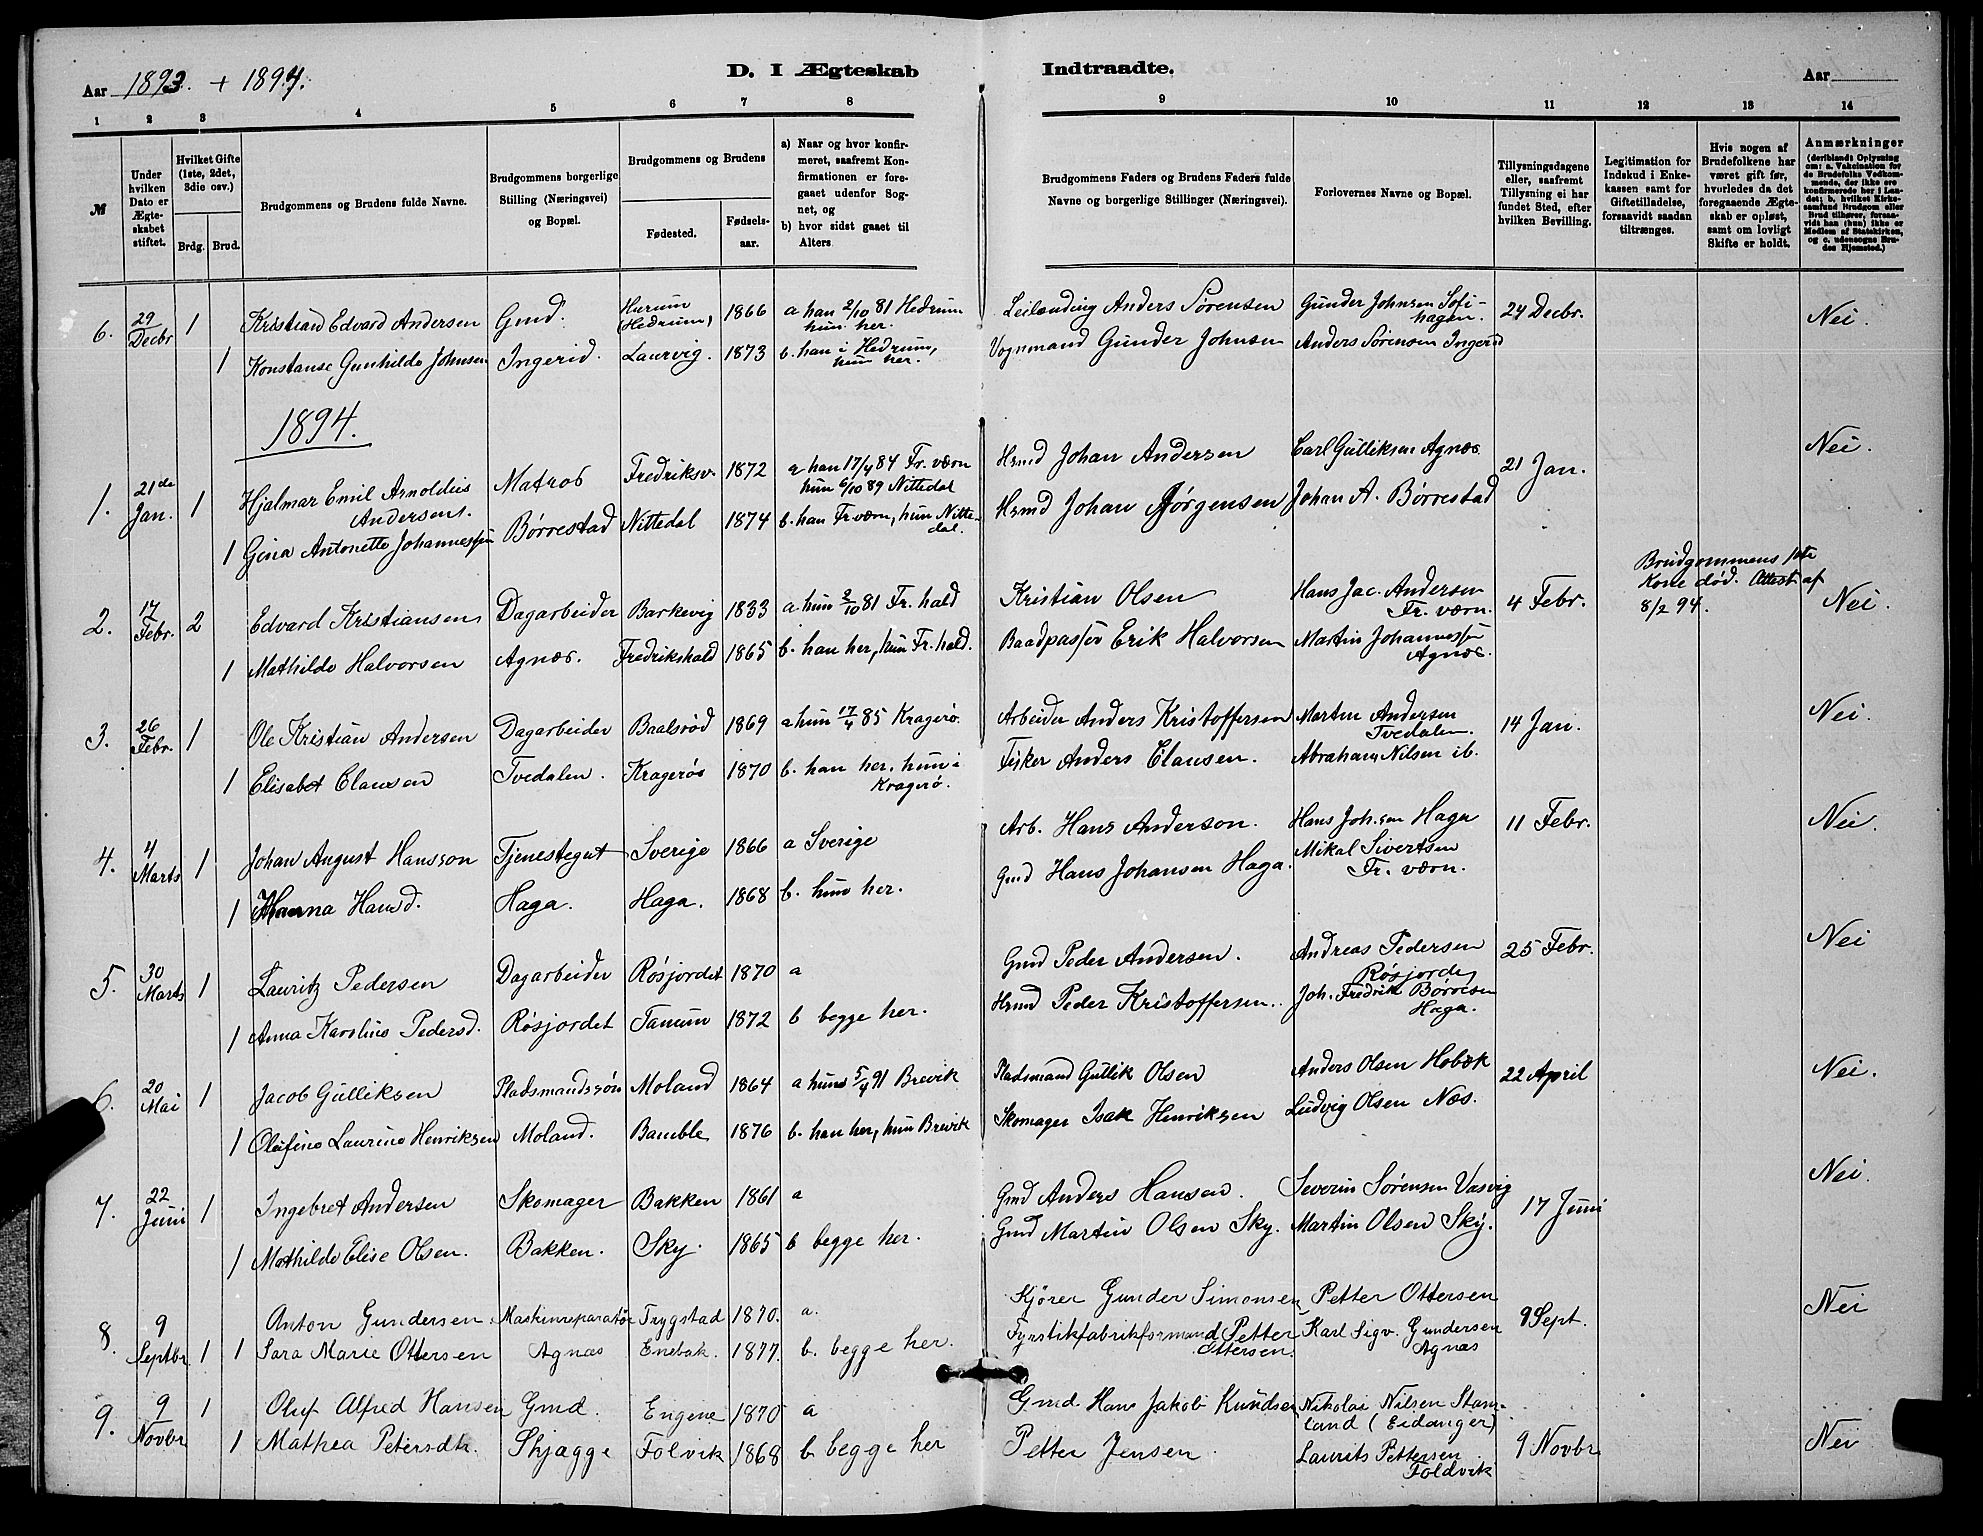 Aar 1893. + 1894.
D. I Ægteskab Indtraadte.
Aar
1 2 3 4 5 6 7 8 9 10 11 12 13 14
№
Under hvilken Dato er Ægteskabet stiftet.
Hvilket Gifte (1ste, 2det, 3die osv.)
Brdg. Brud.
Brudgommens og Brudens fulde Navne.
Brudgommens borgerlige Stilling (Næringsvei) og Bopæl.
Brudgommens og Brudens
Fødested. Fødselsaar.
a) Naar og hvor konfirmeret, saafremt Konfirmationen er foregaaet udenfor Sognet, og
b) hvor sidst gaaet til Alters.
Brudgommens Faders og Brudens Faders fulde Navne og borgerlige Stillinger (Næringsvei).
Forlovernes Navne og Bopæl.
Tillysningsdagene eller, saafremt Tillysning ei har fundet Sted, efter hvilken Bevilling.
Legitimation for Indskud i Enkekassen samt for Giftetilladelse, forsaavidt saadan tiltrænges.
Hvis nogen af Brudefolkene har været gift før, hvorledes da det foregaaende Ægteskab er opløst, samt om lovligt Skifte er holdt.
Anmærkninger (deriblandt Oplysning om: a. Vakcination for de Brudefolks Vedkommende, der ikke ere konfirmerede her i Landet; b. hvilket Kirkesamfund Brudgom eller Brud tilhører, forsaavidt han (hun) ikke er Medlem af Statskirken, og c. udensogns Brudes Hjemsted.)
6. 29 Decbr 1 Kristian Edvard Andersen Gmd. Hurum (Hedrum) 1866 a han 2/10 81 Hedrum hun her. Leilænding Anders Sørensen Gunder Johnsen Sofihagen. 24 Decbr. Nei.
1 Konstanse Gunhilde Johnsen Ingerid. Laurvig. 1873 b. han i Hedrum, hun her. Vognmand Gunder Johnsen Anders Sørensen Ingerid
1894.
1. 21de Jan. 1 Hjalmar Emil Arnoldus Andersen. Matros Fredriksv. 1872 a han 17/4 84 Fr. værn hun 6/10 89 Nittedal Hsmd Johan Andersen Carl Gulliksen Agnæs 21 Jan. Nei.
1 Gina Antonette Johannessen Børrestad Nittedal 1874 b. han Fr værn, hun Nittedal. Hsmd Johan Jørgensen Johan A. Børrestad
2. 17 Febr. 2 Edvard Kristiansen Dagarbeider Barkevig 1833 a hun 2/10 81 Fr. hald Kristian Olsen Hans Jac. Andersen Fr. værn. 4 Febr. Brudgommens 1ste Kone død. Attest af 8/2 94. Nei.
1 Mathilde Halvorsen Agnæs. Fredrikshald 1865 b. han her, hun Fr. hald. Baadpasser Erik Halvorsen Martin Johannessen Agnæs.
3. 26 Febr. 1 Ole Kristian Andersen Dagarbeider Baalsrød 1869 a hun 17/4 85 Kragerø. Arbeider Anders Kristoffersen Martin Andersen Tvedalen. 14 Jan. Nei.
1 Elisabet Clausen Tvedalen. Kragerøs 1870 b. han her. hun i Kragerø. Fisker Anders Clausen. Abraham Nilsen ib.
4. 4 Marts 1 Johan August Hansson Tjenestegut Sverige 1866 a Sverige Arb. Hans Anderson. Hans Johsen Haga 11 Febr. Nei.
1 Hanna Hansd. Haga. Haga. 1868 b. hun her. Gmd Hans Johansen Haga. Mikal Sivertsen Fr. værn.
5. 30 Marts 1 Lauritz Pedersen Dagarbeider Røsjordet 1870 a Gmd Peder Andersen. Andreas Pedersen Røsjorde 25 Febr. Nei
1 Anna Karoline Pedersd. Røsjordet Tanum 1872 b begge her. Hsmd Peder Kristoffersen. Joh. Fredrik Børresen Haga.
6. 20 Mai 1 Jacob Gulliksen Pladsmandssøn Moland 1864 a hun 5/4 91 Brevik Pladsmand Gullik Olsen Anders Olsen Hobæk 22 April Nei.
1 Olufine Laurine Henriksen Moland. Bamble 1876 b. han her, hun Brevik Skomager Isak Henriksen Ludvig Olsen Næs.
7. 22 Juni 1 Ingebret Andersen Skomager Bakken 1861 a Gmd Anders Hansen. Severin Sørensen Vasvig 17 Juni Nei.
1 Mathilde Elise Olsen. Bakken. Sky. 1865 b begge her. Gmd Martin Olsen Sky. Martin Olsen Sky.
8. 9 Septbr 1 Anton Gundersen. Maskinreparatør Trygstad 1870. a. Kjører Gunder Simonsen Petter Ottersen 9 Sept. Nei
1 Sara Marie Ottersen Agnæs Enebak. 1877. b. begge her. Fyrstikfabrikformand Petter Ottersen. Karl Sigv. Gundersen Agnæs
9. 9 Novbr 1 Oluf Alfred Hansen Gmd. Engene 1870 a Gmd Hans Jakob Kundsen Nikolai Nilsen Stamland (Eidanger)
1 Mathea Petersdtr. Skjægge Folvik 1868 b. begge her Petter Jensen. Laurits Pettersen Foldvik 9 Novbr Nei